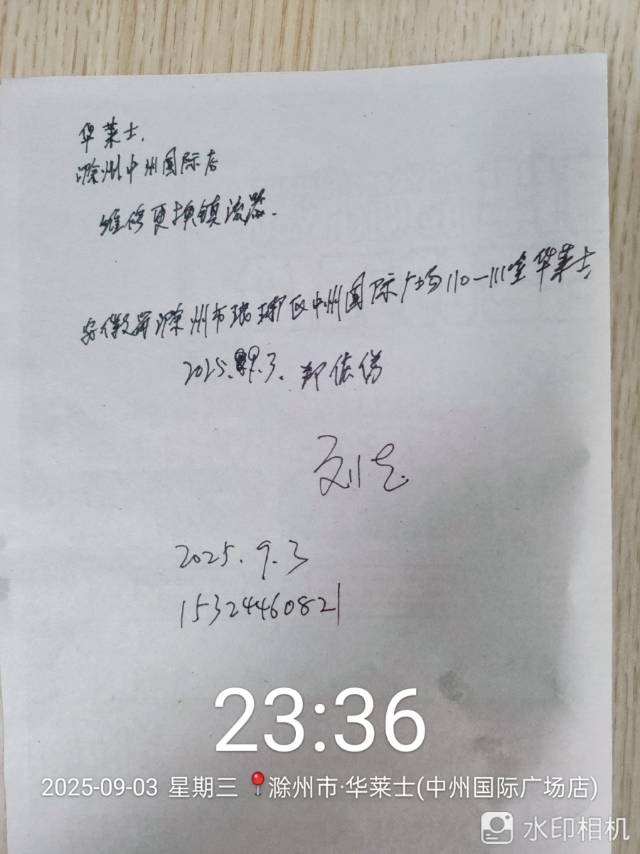 华莱士.
滁州中州国际店
维修更换镇流器.
安徽省滁州市琅琊区中州国际广场110-111室华莱士
2025.9.3.
刘
2025.9.3
15324460821
23:36
2025-09-03 星期三 滁州市·华莱士(中州国际广场店)
水印相机